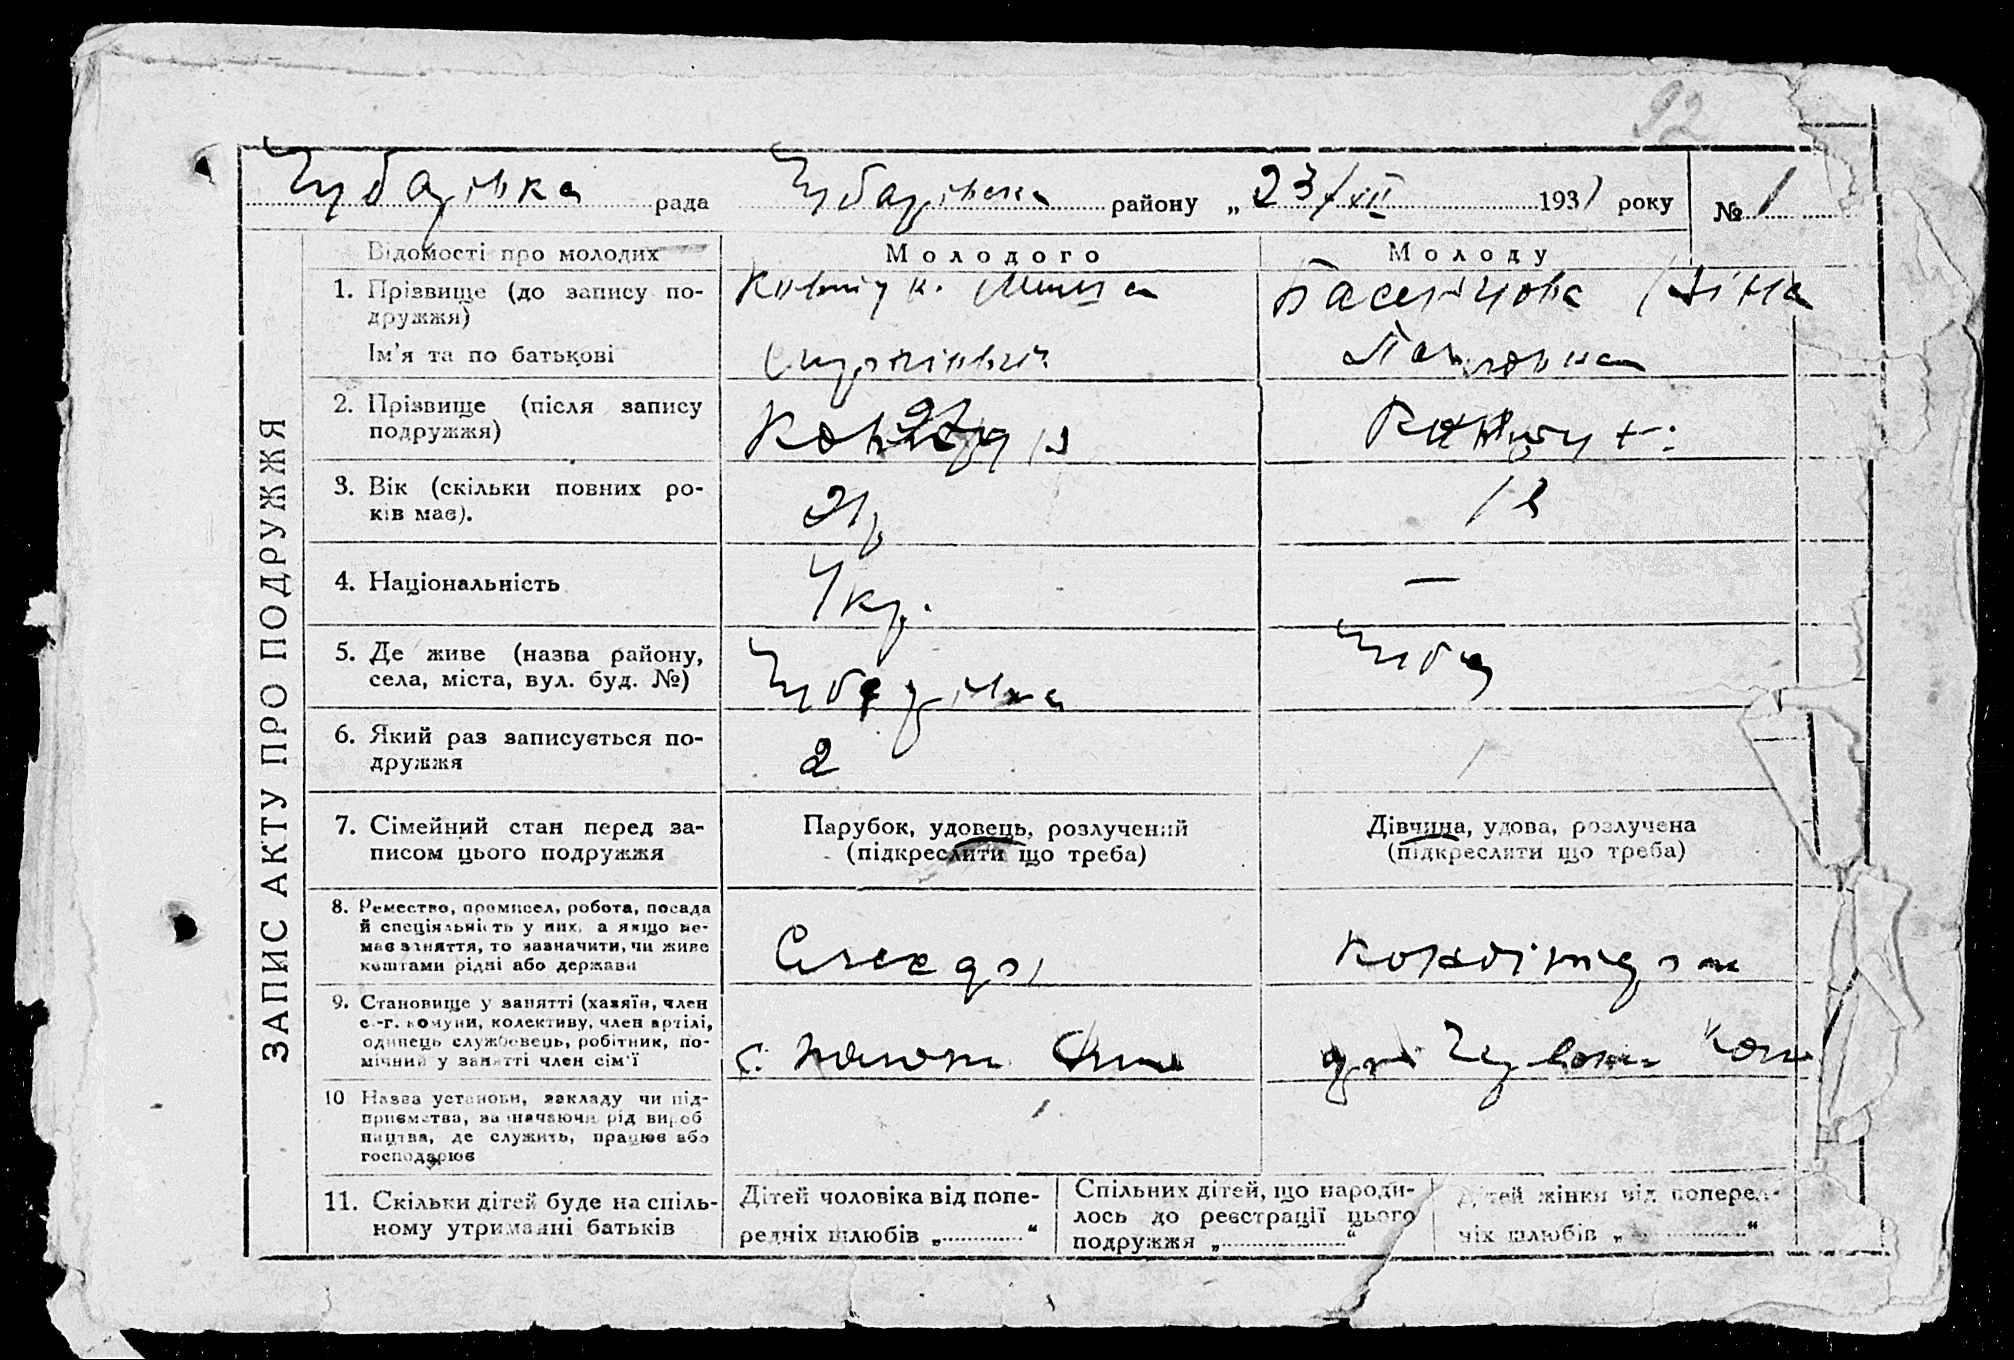 92
Чубарівка рада Чубарівська району „ 23/XII 1931 року № 1
ЗАПИС АКТУ ПРО ПОДРУЖЖЯ
Відомості про молодих
Молодого
Молоду
1. Прізвище (до запису по-
дружжя)
Ім’я та по батькові
Миша
Павловна
2. Прізвище (після запису
подружжя)
3. Вік (скільки повних ро-
ків має).
21р
18
4. Національність
Укр.
—
5. Де живе (назва району,
села, міста, вул. буд. №)
Чубарівка
Чубар
6. Який раз записується по-
дружжя
2
1
7. Сімейний стан перед за-
писом цього подружжя
Парубок, удовець, розлучений
(підкреслити що треба)
Дівчина, удова, розлучена
(підкреслити що треба)
8. Ремество, промисел, робота, посада
й спеціяльність у них, а якщо не-
має заняття, то зазначити, чи живе
коштами рідні або держави
Слесар
9. Становище у занятті (хазяїн, член
с.-г. комуни, колективу, член артілі,
одинець службовець, робітник, по-
мічний у занятті член сім’ї
10 Назва установи, закладу чи під-
приємства, зазначаючи рід вироб
ництва, де служить, працює або
господарює
11. Скільки дітей буде на спіль-
ному утриманні батьків
Дітей чоловіка від попе-
редніх шлюбів „ “
Спільних дітей, що народи-
лось до реєстрації цього
подружжя „ “
Дітей жінки від поперед-
ніх шлюбів „ “